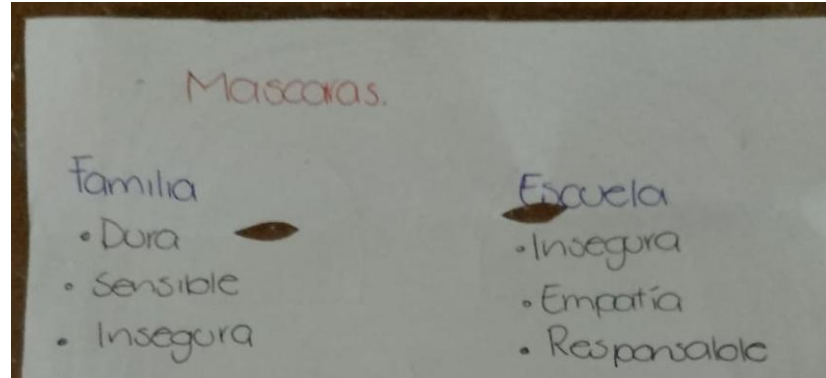 Mascaras.
Familia
• Dura
• Sensible
• Insegura
Escuela
• Insegura
• Empatía
• Responsable